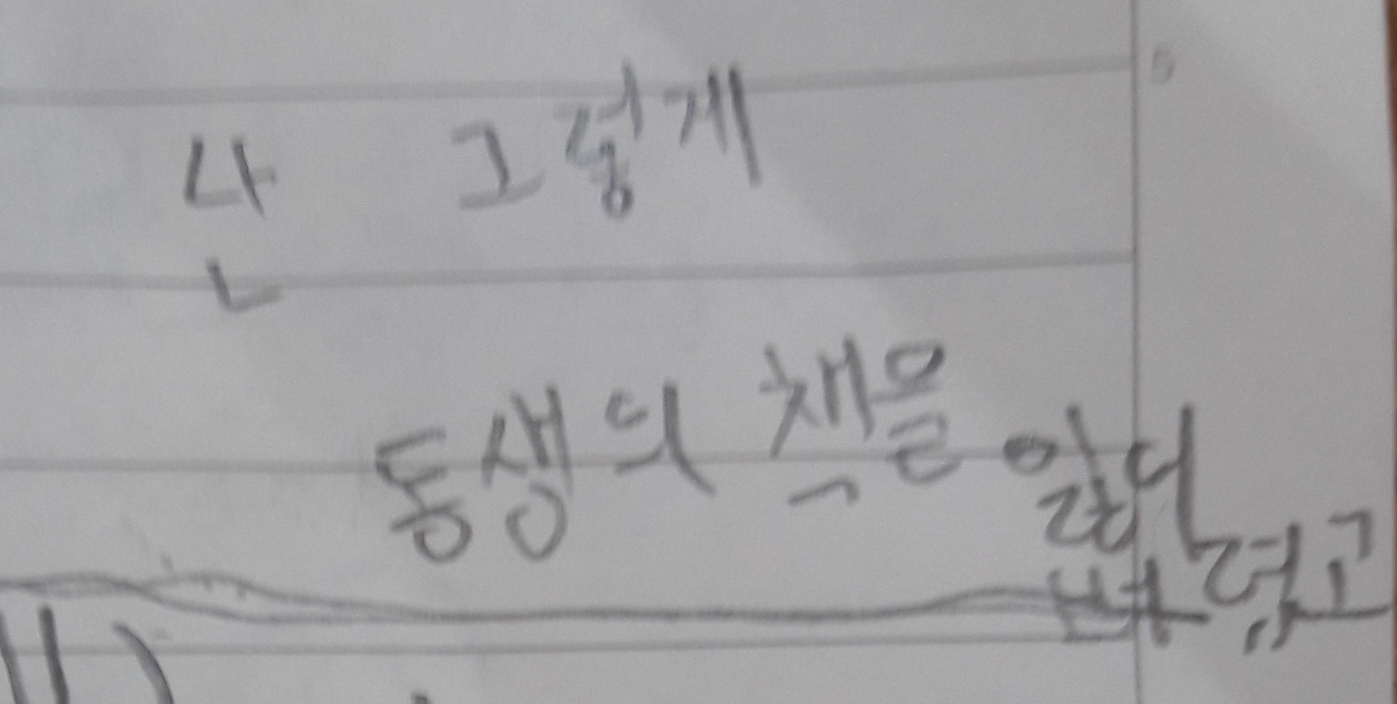 난 그렇게
동생의 책을 잃어버렸고